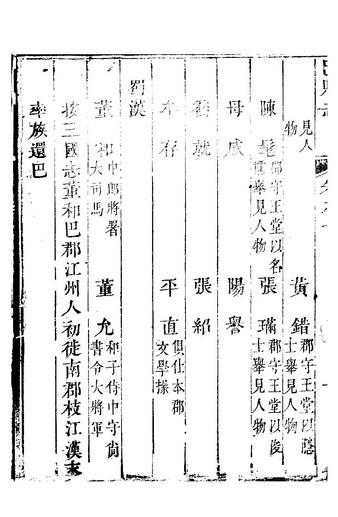 見人物 黃錯 郡守王堂以隱士舉見人物
陳髦 郡守王堂以名儒舉見人物 張璊 郡守王堂以俊士舉見人物
毋成 陽譽
就 張紹
牟存 平直 俱仕本郡文學掾
蜀漢
董和 中郎將署大司馬 董允 和子侍中守尚書令大將軍
按三國志董和巴郡江州人初徙南郡枝江漢末
率族還巴